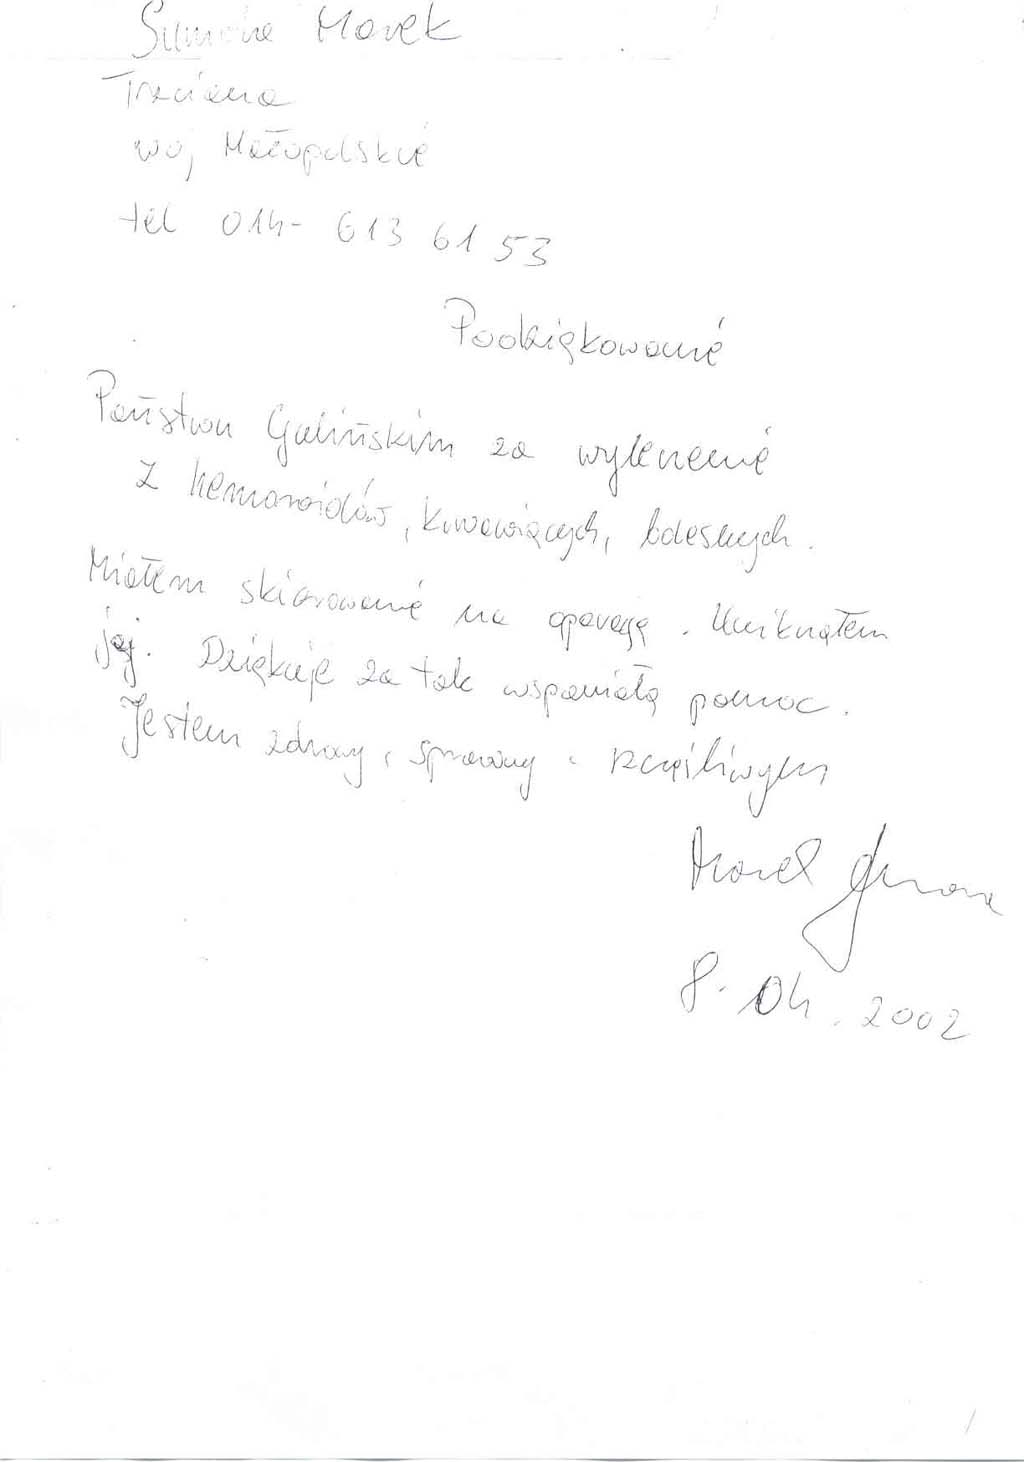 Marek
Trzciana
woj Małopolskie
tel 014- 613 61 53
Podziękowanie
Państwu Galińskim za wyleczenie
z hemoroidów, krwawiących, bolesnych.
Miałem skierowanie na operację. Uniknąłem
jej. Dziękuję za tak wspaniałą pomoc.
Jestem zdrowy, sprawny i szczęśliwym
Marek
8.04.2002